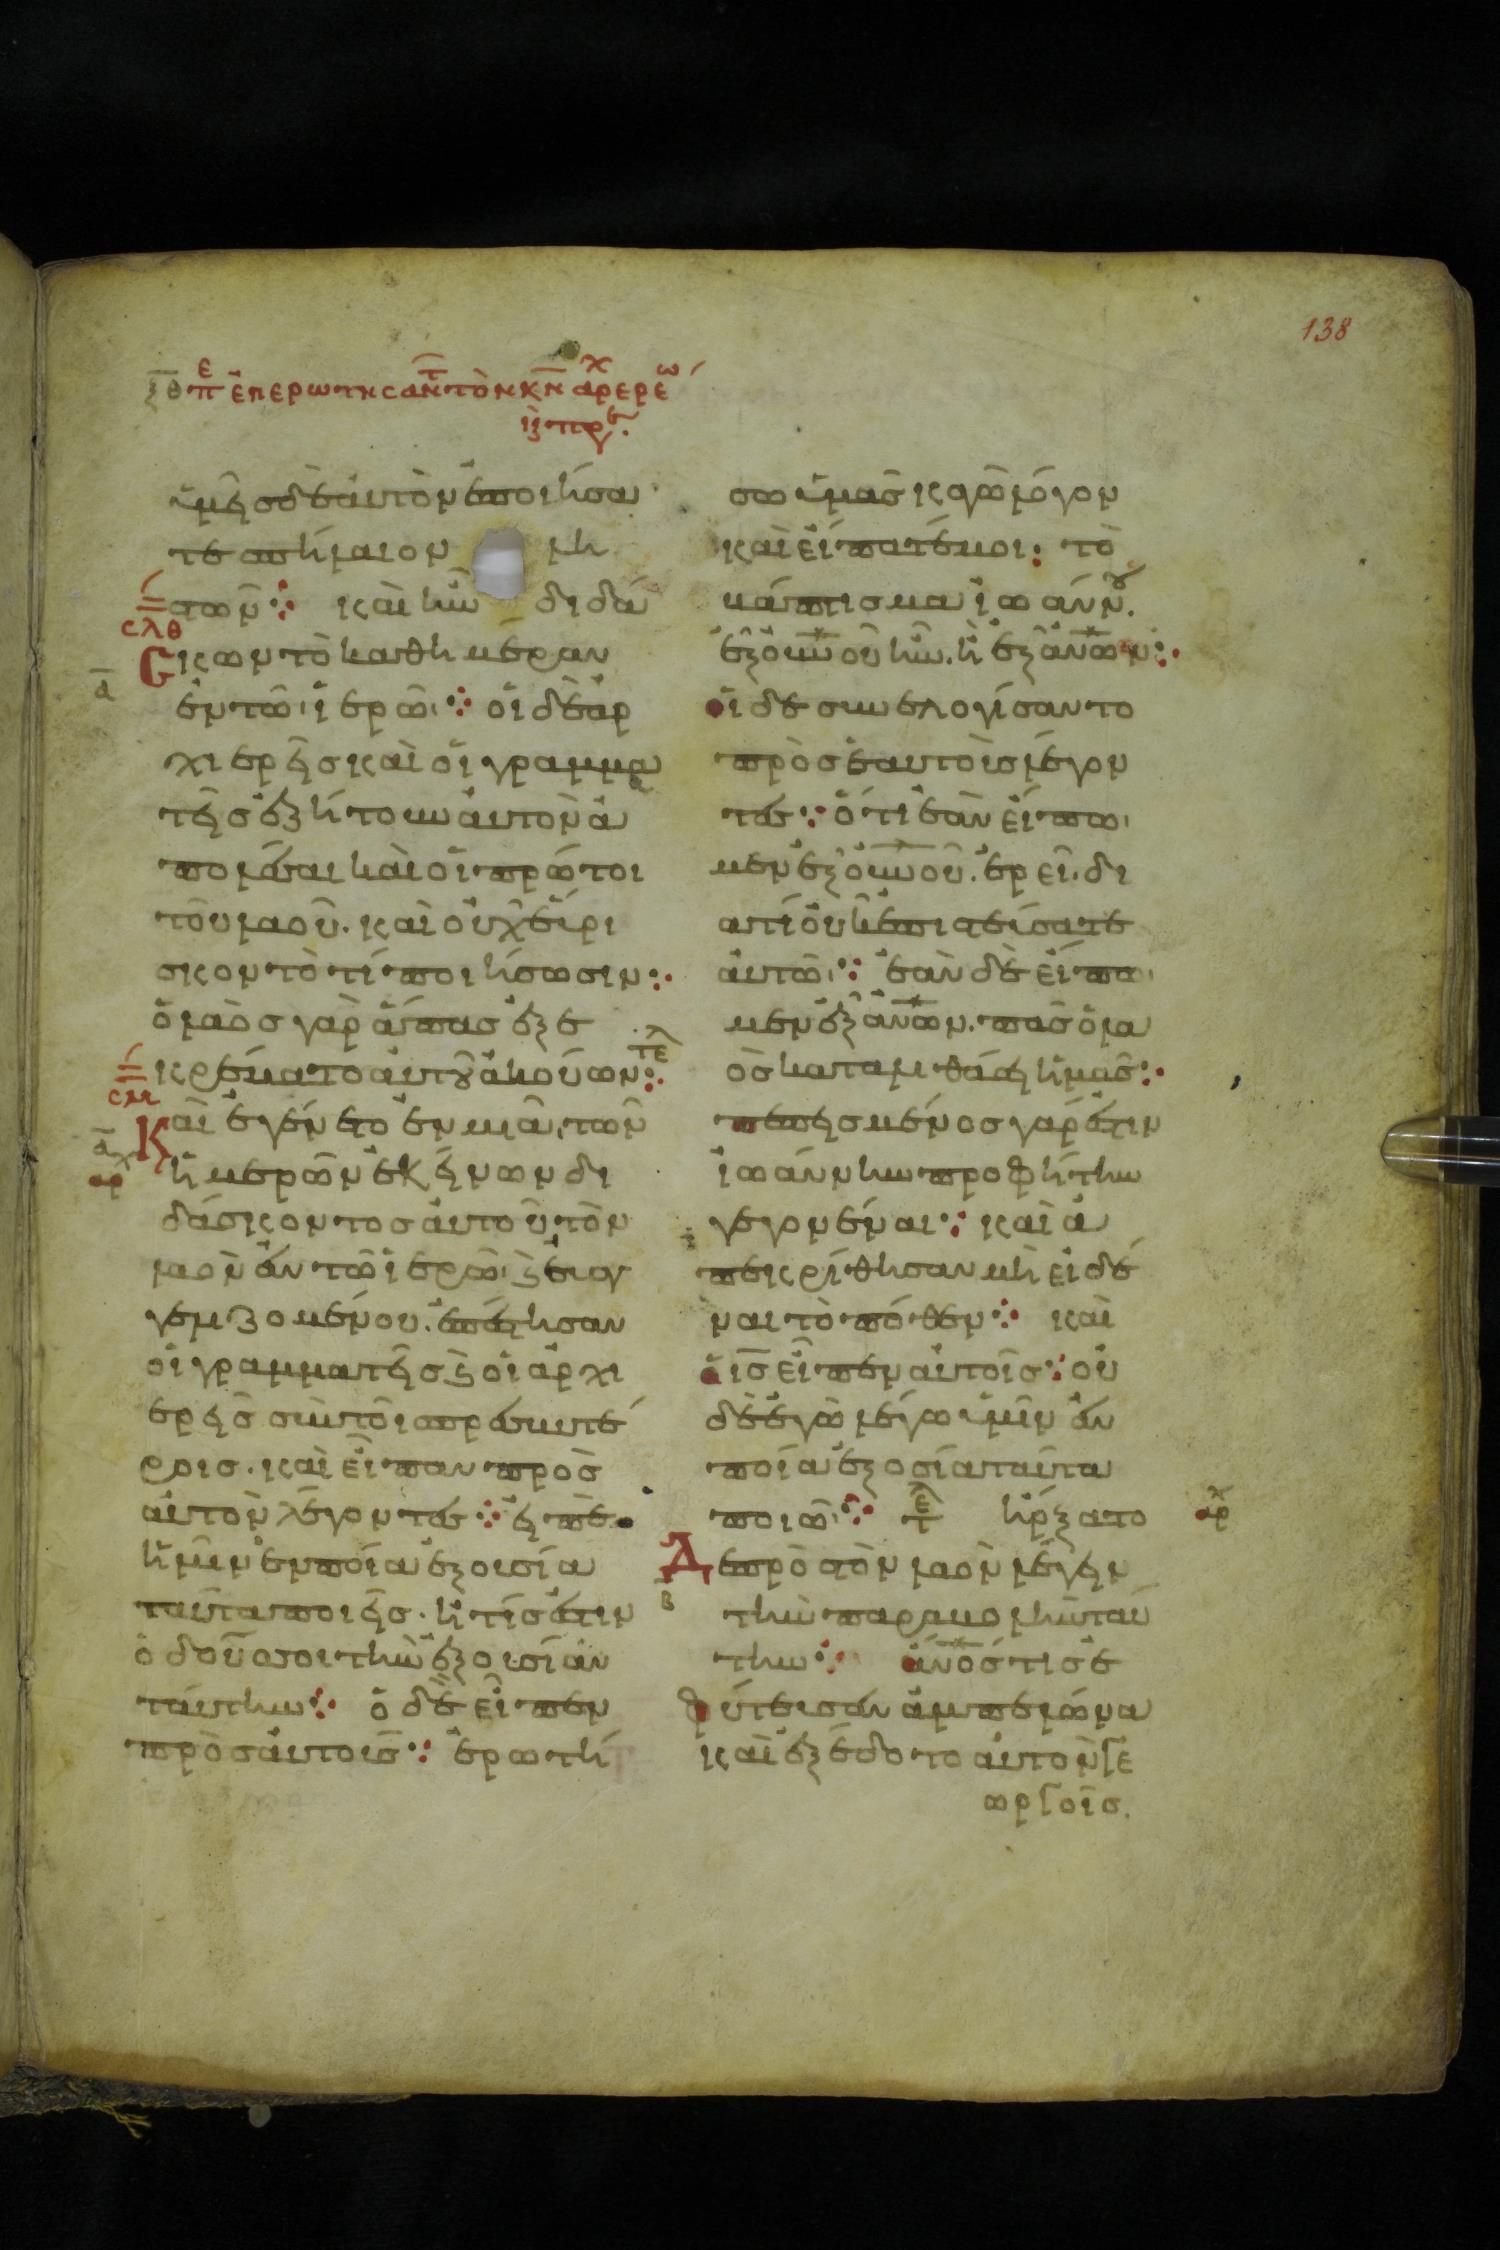 138
ξθ πε ἐπερωτησάντ τὸν κν ἀρχερέω
ιξ πργ
ὑμεῖς δὲ αὐτὸν ἐποιήσα
τε σπήλαιον λη
στῶν· καὶ ἦν διδά
σλθ
σκων τὸ καθημέραν
ἐν τῶ ἱερῶ· οἱ δὲ ἀρ
χιερεῖς καὶ οἱ γραμμα
τεῖς ἐζήτουν αὐτὸν ἀ
πολέσαι καὶ οἱ πρώτοι
τοῦ λαοῦ. καὶ οὐχ εὕρι
σκον τὸ τί ποιήσωσιν·
ὁ λαὸς γὰρ ἅπας ἐξε
κρέματο αὐτοῦ ἀκούων· τελ
σμ
Καὶ ἐγένετο ἐν μιᾶ τῶν
αρχ
ἡμερῶν ἐκείνων δι
δάσκοντος αὐτοῦ τὸν
λαὸν ἐν τῶ ἱερῶ, καὶ εὐαγ
γελιζομένου. ἐπέστησαν
οἱ γραμματεῖς καὶ οἱ ἀρχι
ερεῖς σὺν τοῖς πρεσβυτέ
ροις. καὶ εἶπαν πρὸς
αὐτὸν λέγοντες· εἰπὲ
ἡμῖν ἐν ποία ἐξουσία
ταῦτα ποιεῖς. ἢ τίς ἐστιν
ὁ δούς σοι τὴν ἐξουσίαν
ταύτην· ὁ δὲ εἶπεν
πρὸς αὐτοῖς· ἐρωτή
σω ὑμᾶς κἀγῶ λόγον
καὶ εἴπατέ μοι· τὸ
βάπτισμα ἰωάννου.
ἐξ οὐνου ἦν. ἢ ἐξ ἀνων·
οἱ δὲ συνελογίσαντο
πρὸς ἑαυτοὺς λέγον
τες· ὅτι ἐὰν εἴπω
μεν ἐξ οὐνοῦ. ἐρεῖ. δι
ατί οὐκ ἐπιστεύσατε
αὐτῶ· ἐὰν δὲ εἴπω
μεν ἐξ ἀνων. πᾶς ὁ λα
ὸς καταλιθάσει ἡμᾶς·
πεπεισμένος γάρ ἐστιν
ἰωάννην προφήτην
γεγονέναι· καὶ ἀ
πεκρίθησαν μὴ εἰδέ
ναι τὸ πόθεν· καὶ
ὁ ις εἶπεν αὐτοῖς· οὐ
δὲ ἐγὼ λέγω ὑμῖν ἐν
ποία ἐξοσία ταῦτα
ποιῶ· τελ ἤρξατο αρχ
Δὲ πρὸς τὸν λαὸν λέγειν
τὴν παραβολὴν ταύ
την· ἄνος τις ἐ
φύτευσεν ἀμπελῶνα
καὶ ἐξέδοτο αὐτὸν γε
ωργοῖς.